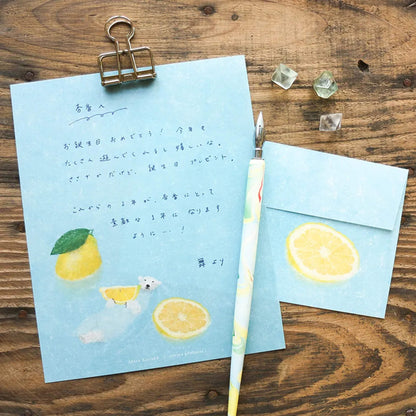 お誕生日おめでとう！今年も
たくさん遊んでくれると嬉しいな。
ささやかだけど、誕生日プレゼント。
これからの1年が、香香にとって
素敵な1年になります
ように…！
より